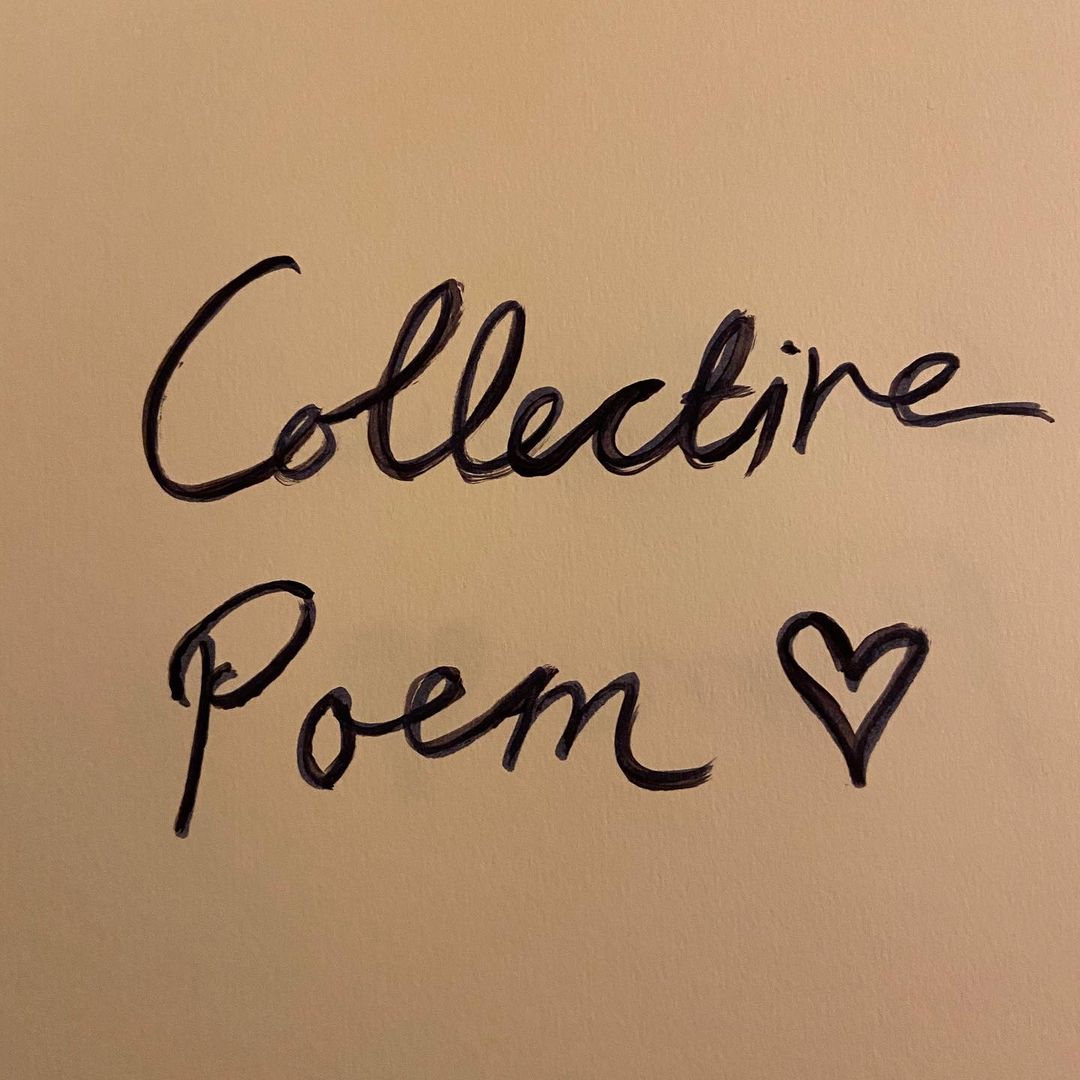 Collective
Poem ♡